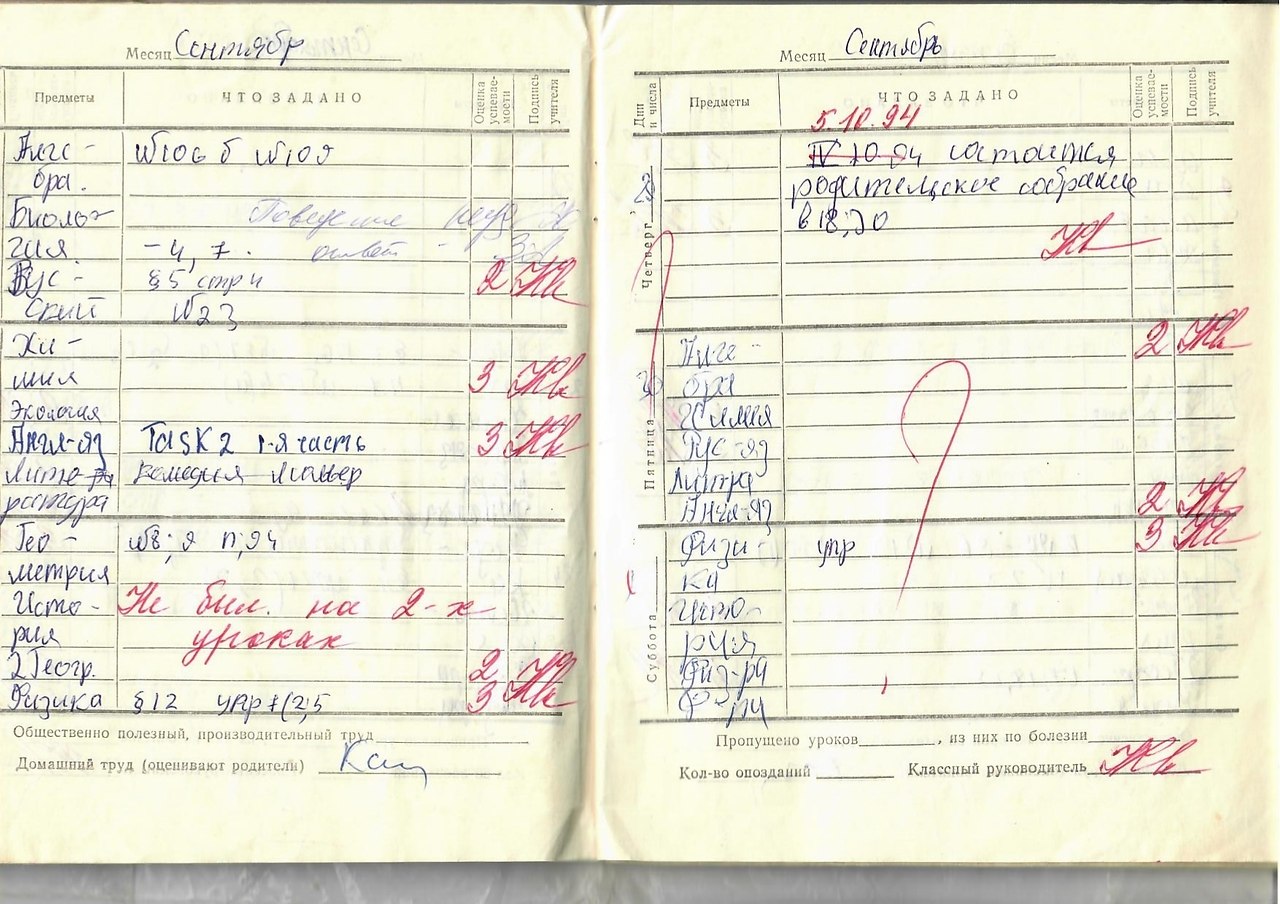 Месяц Сентябр
Предметы ЧТО ЗАДАНО Оценка успеваемости Подпись учителя
Алге-
бра. №106 б №109
Биоло- Поведение неуд
гия. - 4, 7. ответ -
Рус- §5 стр 4 2
ский №23
Хи-
мия 3
Экология
Англ-яз Task 2 1-я часть 3
Лите-
ратура
Гео- №8; 9 п; 94
метрия
Исто- Не был на 2-х
рия уроках
2 Геогр. 2
Физика §12 упр 7(2;5 3
Общественно полезный, производительный труд
Домашний труд (оценивают родители)
Месяц Сентябрь
Дни и числа Предметы ЧТО ЗАДАНО Оценка успеваемости Подпись учителя
5.10.94
Четверг IV 10 94 состоится
родительское собрание
в 18;30
Пятница 30
Алге- 2
бра
Химия
Рус-яз
Литра
Англ-яз 2
Суббота
Физи упр 3
ка
Исто-
рия
Физ-ра
Ф- ра
Пропущено уроков , из них по болезни
Кол-во опозданий Классный руководитель